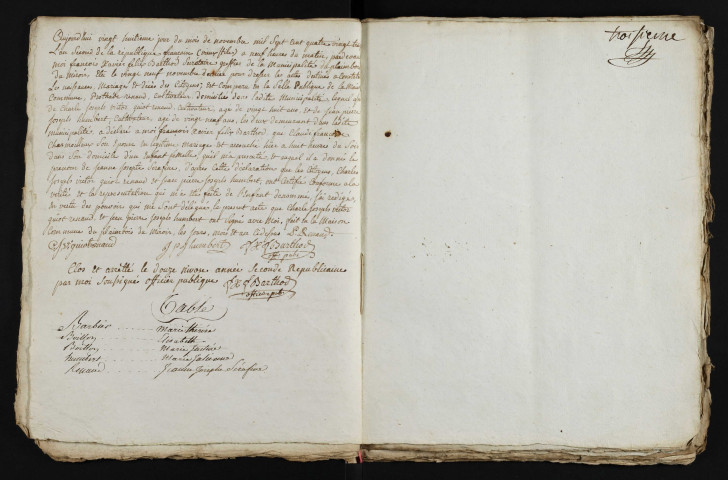 Aujourdhui vingt huitieme jour du mois de novembre mil sept cent quatre vingt
L'an second de la république française à neuf heures du matin, pardevant
moi françois Xavier felix Barthod Secretaire greffier de la Municipalité de plaimbois
du miroir, élu le vingt neuf novembre dernier pour dresser les actes destinés a constater
les naissances, mariages et décès des Citoyens, est comparu en la Salle Publique de la Maison
Commune, renaud, Cultivateur, domicilié dans ladite Municipalité, lequel assisté
de Charle Joseph victor quiot renaud, cultivateur, agé de vingt huit ans, et de jean pierre
Joseph humbert, Cultivateur, agé de vingt neuf ans, les deux demeurant dans ladite
municipalité, a déclaré a moi françois Xavier felix Barthod, que Claude françoise
Charmoilleux Son épouse en légitime mariage est accouchée hier a huit heures du Soir
dans Son domicile d'un Enfant femelle, qu'il m'a presenté, et auquel il a donné le
prenom de Jeanne Josephe Sérafine, d'après cette déclaration que les Citoyens, Charle
Joseph victor quiot renaud et jean pierre Joseph humbert, ont Certifié Conforme a la
verité et la representation qui m'a été faite de l'enfant denommé, j'ai redigé
en vertu des pouvoirs qui me sont délégués, le present acte que Charle Joseph victor
quiot renaud, et jean pierre Joseph humbert ont Signé avec moi, fait la Maison
Commune du plaimbois du miroir, les jours, mois et an cidessus Renaud
quiot renaud J p J humbert f X f Barthod
off. pub.
Clos et arrêtté le douze nivos année Seconde Republicaine
par moi Soussigné officier publique f X f Barthod
officier pub.
Table
Barbier Marie thérese
Boillon Elisabeth
Boillon Marie Justine
humbert Marie
Renaud Jeanne Josephe Sérafine
trois